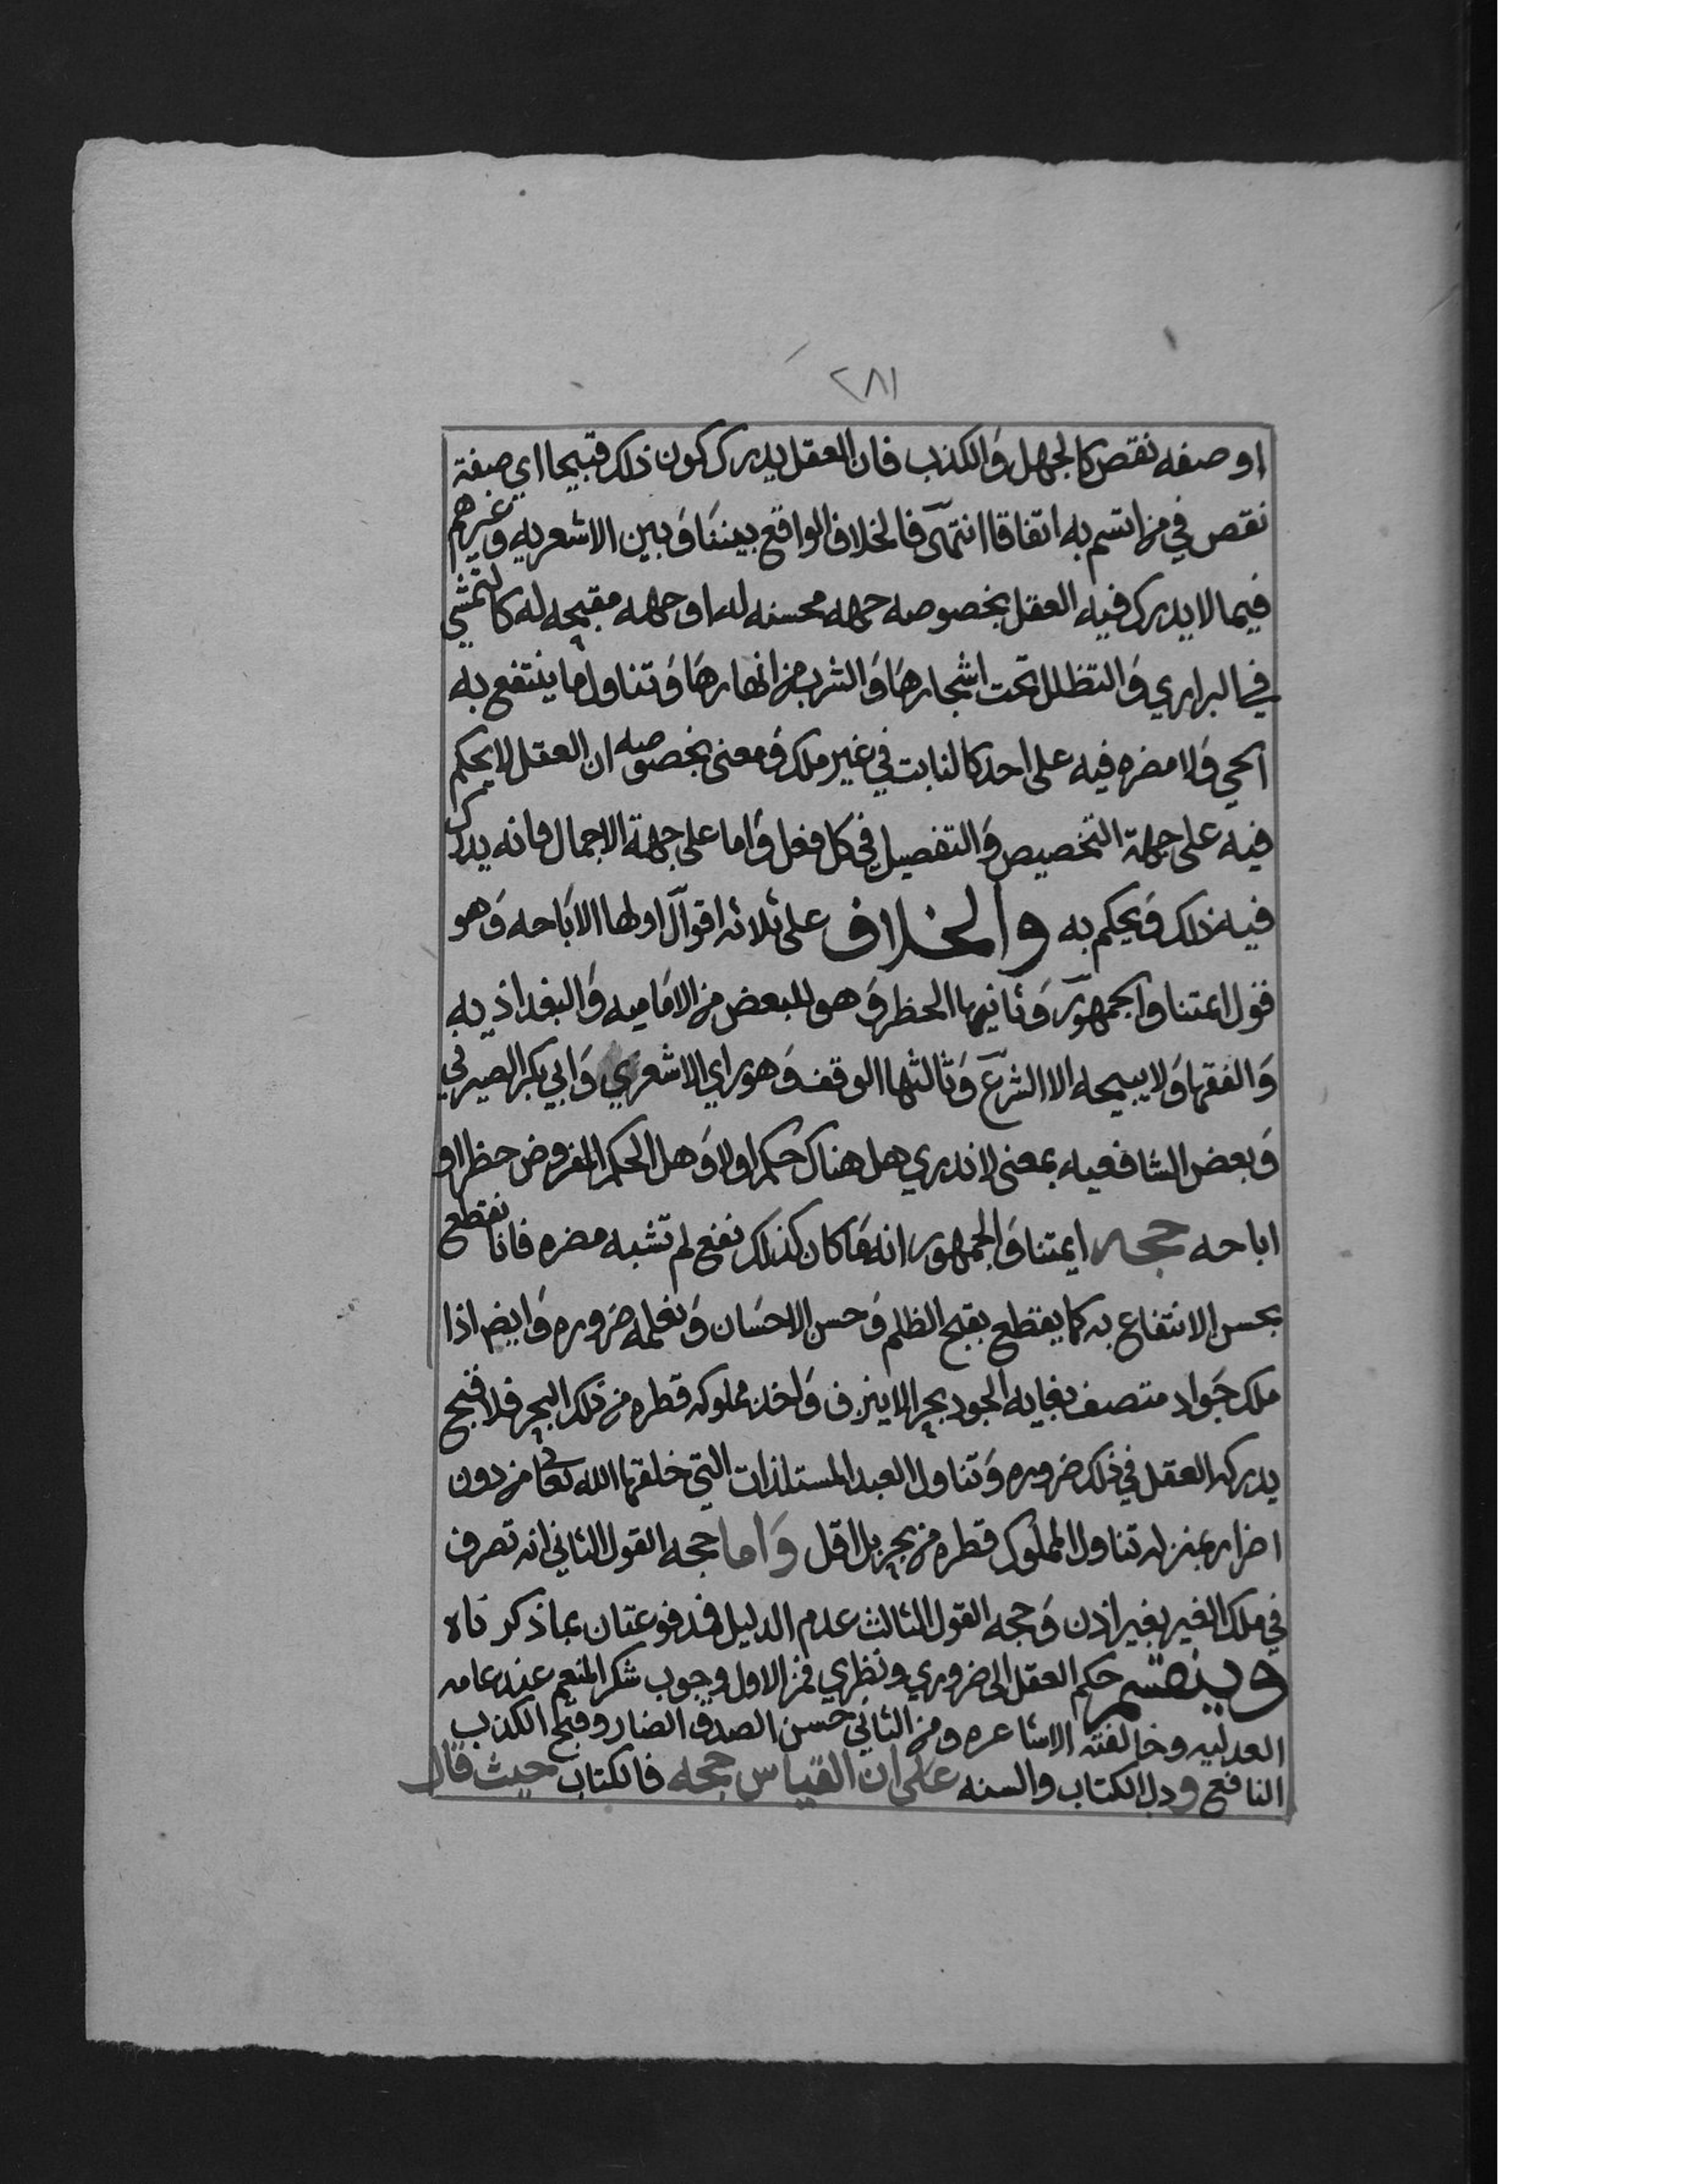 ٢٨١
او صفه نقص كالجهل وَالكذب فان العقل يدرك كون ذلك قبيحا اي صفة
نقص في من اتسم به اتفاقا انتهىَ فالخلاف الواقع بيننَا وَبين الاشعريه وَغيرهم
فيما لا يدرك فيه العقل بخصوصه جهه محسنه له او جهه مقبحه له كالتمشي
في البراري وَالتظلل تحت اشجارهَا وَالشرب من انهارهَا وَتناول ما ينتفع به
الحي وَلا مضره فيه على احد كالنابت في غير ملك وَمعنى بخصوصه ان العقل لا يحكم
فيه على جهة التخصيص وَالتفصيل في كل فعل وَاما على جهة الاجمال فانه يدرك
فيه ذلك وَيحكم به والخلاف على ثلاثه اقوال اولها الاباحه وَهو
قول ائمتنا والجمهور وَثانيها الحظر وَهو للبعض من الامَاميه وَالبغداذيه
وَالفقها وَلا يبيحه الا الشرع وَثالثها الوقف وَهو راي الاشعري وَابي بكر الصيرفي
وَبعض الشافعيه بمعنى لا ندري هل هناك حكم او لا وَهل الحكم المفروض حظر او
اباحه حجه ايمتنا وَالجمهور انه مَا كان كذلك نفع لم تشبه مضره فانا نقطع
بحسن الانتفاع به كما يقطع بقبح الظلم وَحسن الاحسَان وَنعلمه ضروره وَايضا اذا
ملك جَواد متصف بغايه الجود بحرا لا ينزف وَاخذ مملوكه قطره من ذلك البحر فلا قبح
يدركه العقل في ذلك ضروره وَتناول العبد المستلذات التي خلقها الله تعالى من دون
اضرار بمنزله تناول المملوك قطره من بحر بل اقل وَاما حجه القول الثاني انه تصرف
في ملك الغير بغير اذن وَحجه القول الثالث عدم الدليل فمدفوعتان بما ذكرناه
وَينقسم حكم العقل الى ضروري ونظري فمن الاول وجوب شكر المنعم عند عامه
العدليه وخالفته الاشاعره ومن الثاني حسن الصدق الضار وقبح الكذب
النافع ودل الكتاب والسنه على ان القياس حجه فالكتاب حيث قال